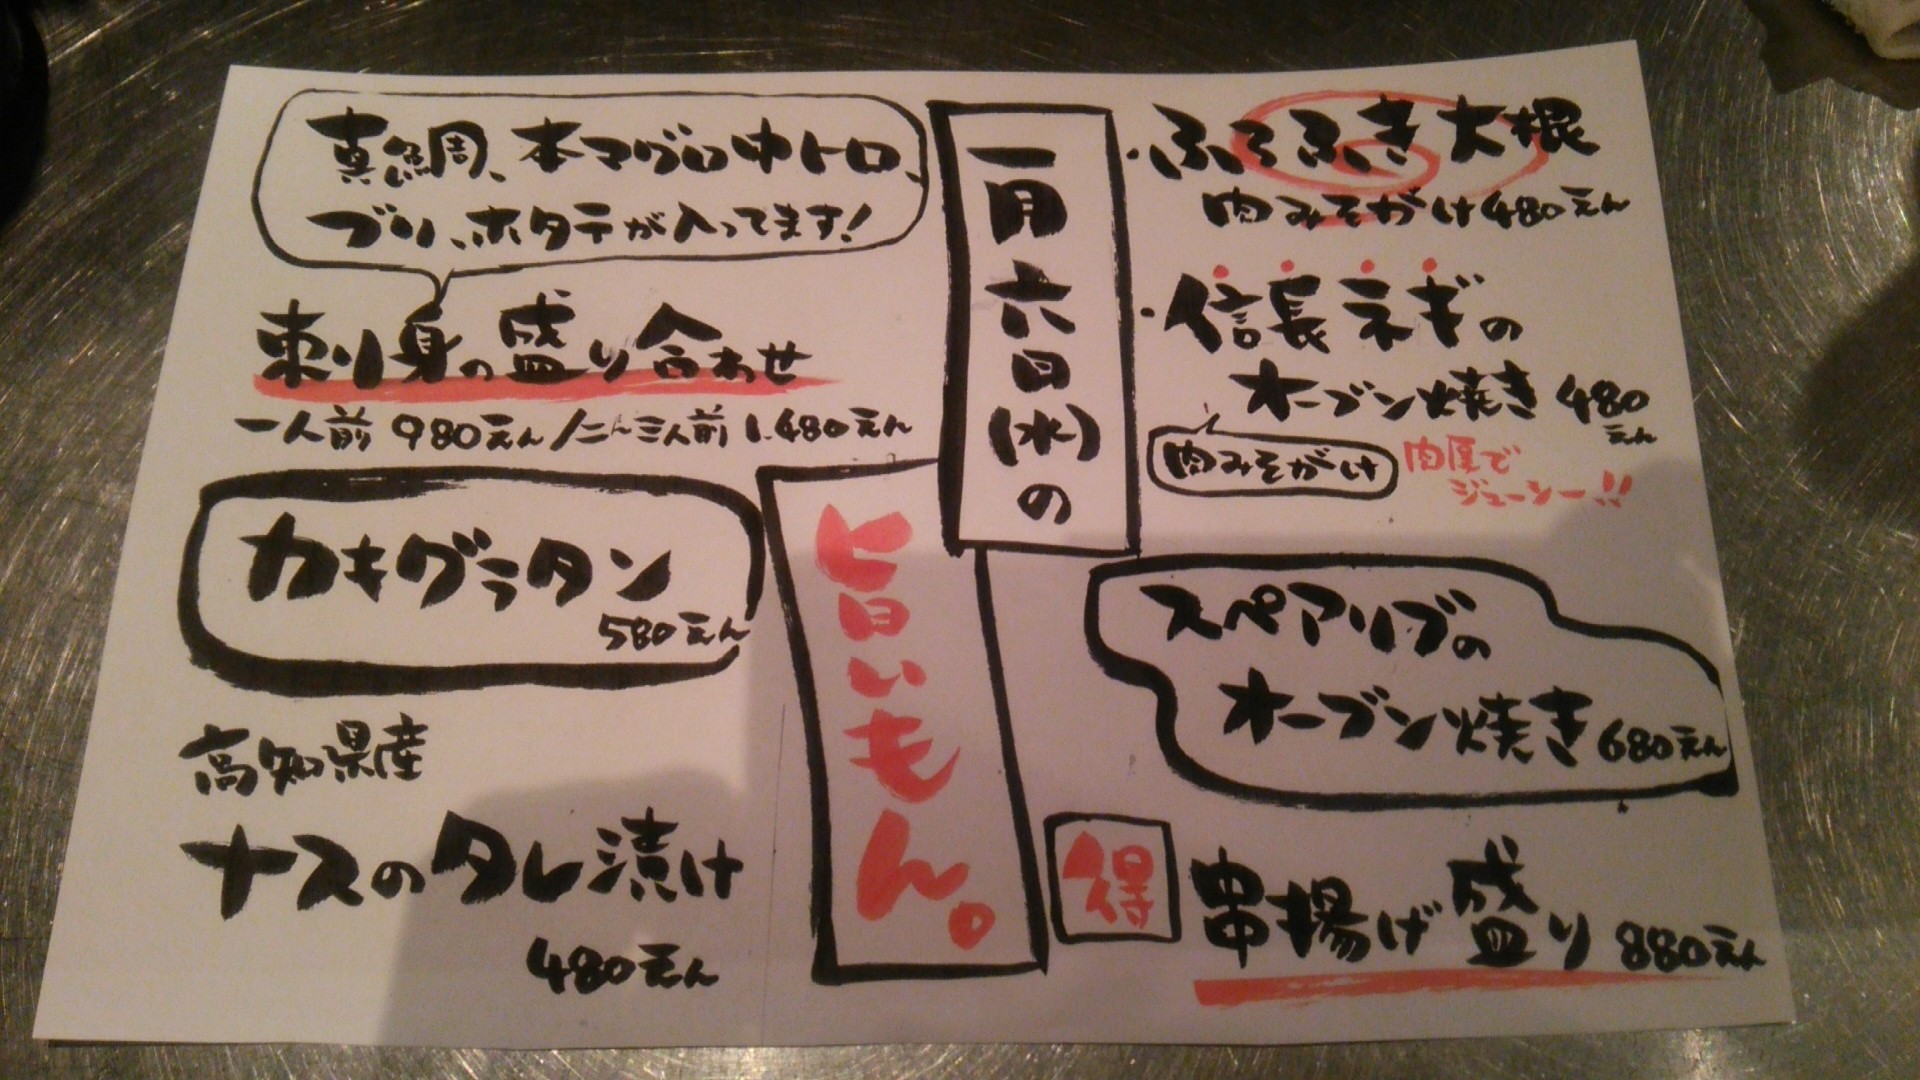 一月六日(水)の
旨いもん。
・ふろふき大根
肉みそがけ480えん
・信長ネギの
オーブン焼き 480えん
肉みそがけ
肉厚で
ジューシー!!
スペアリブの
オーブン焼き 680えん
得
串揚げ盛り 880えん
真鯛、本マグロ中トロ、
ブリ、ホタテが入ってます!
刺り身の盛り合わせ
一人前 980えん/二〜三人前 1,480えん
カキグラタン
580えん
高知県産
ナスのタレ漬け
480えん